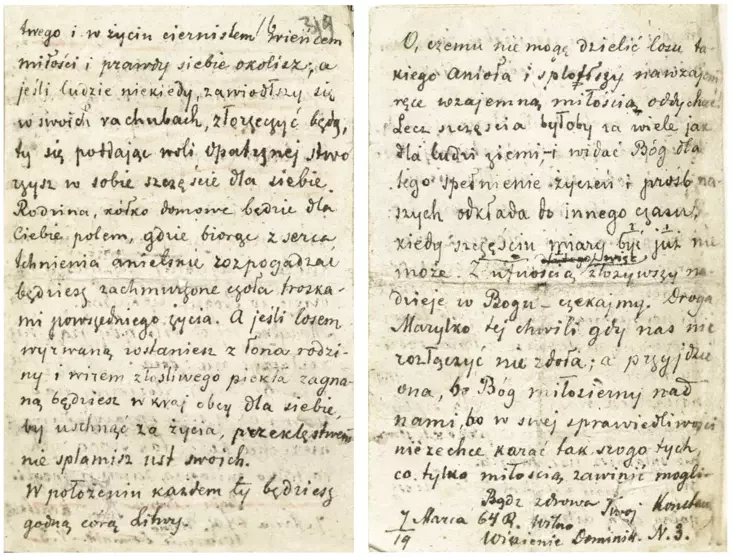 319
twego i w życiu ciernistem wieńcem
miłości i prawdy siebie okolisz; a
jeśli ludzie niekiedy, zawiódłszy się
w swoich rachubach, złorzeczyć będą,
ty się poddając woli Opatrznej stwo
rzysz w sobie szczęście dla siebie.
Rodzina, kółko domowe będzie dla
Ciebie polem, gdzie biorąc z serca
tchnienia anielskie rozpogadzać
będziesz zachmurzone czoła troska-
mi powszedniego życia. A jeśli losem
wyrwaną zostaniesz z łona rodzi-
ny i wirem złośliwego piekła zagna-
ną będziesz w kraj obcy dla siebie,
by uschnąć za życia, przekleństwem
nie splamisz ust swoich.
W położeniu każdem ty będziesz
godną córą Litwy.
O, czemu nie mogę dzielić losu ta-
kiego Anioła i splotłszy nawzajem
ręce wzajemną miłością oddychać.
Lecz szczęścia byłoby za wiele jak
dla ludzi ziemi, i widać Bóg dla
tego spełnienie życzeń i prośb na
szych odkłada do innego czasu,
kiedy szczęściu miary być już nie
może. Z ufnością złożywszy na
dzieje w Bogu – czekajmy. Droga
Marylko tej chwili gdy nas nic
rozłączyć nie zdoła; a przyjdzie
ona, bo Bóg miłosierny nad
nami, bo w swej sprawiedliwości
nie zechce karać tak srogo tych,
co tylko miłością zawinić mogli.
Bądź zdrowa Twój Konstan
7/19 Marca 64 R. Wilno
Więzienie Dominik. N. 3.